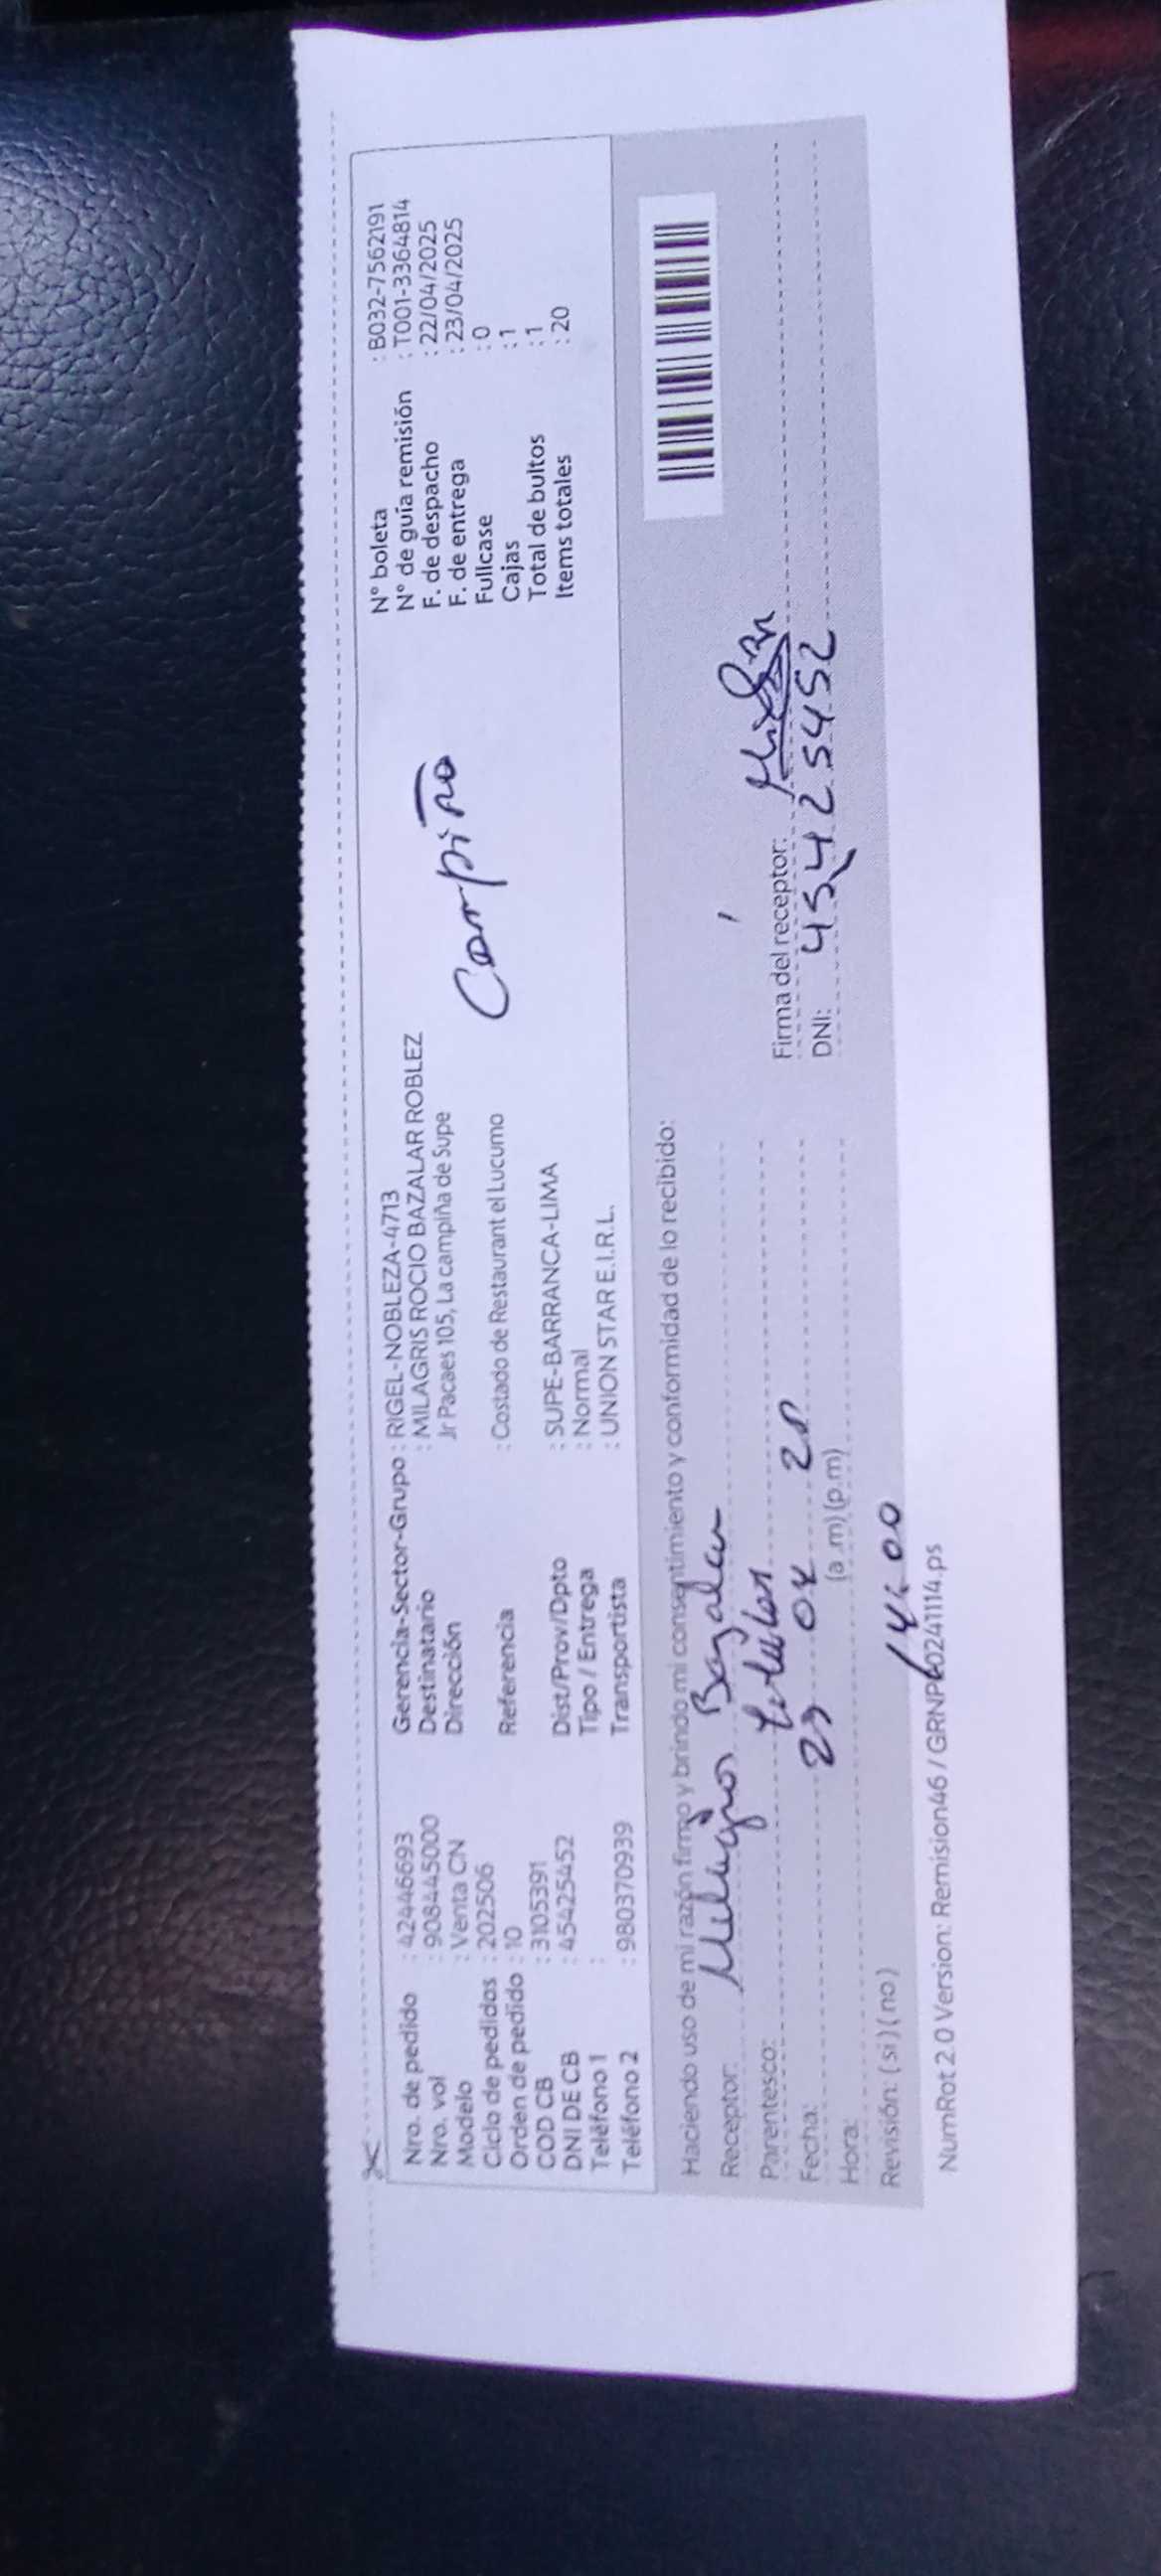 Nro. de pedido : 42446693
Nro. vol : 908445000
Modelo : Venta CN
Ciclo de pedidos : 202506
Orden de pedido : 10
COD CB : 3105391
DNI DE CB : 45425452
Teléfono 1 :
Teléfono 2 : 980370939
Gerencia-Sector-Grupo : RIGEL-NOBLEZA-4713
Destinatario : MILAGRIS ROCIO BAZALAR ROBLEZ
Dirección Jr Pacaes 105, La campiña de Supe
Referencia : Costado de Restaurant el Lucumo
Dist/Prov/Dpto : SUPE-BARRANCA-LIMA
Tipo / Entrega : Normal
Transportista : UNION STAR E.I.R.L.
Campiña
N° boleta : B032-7562191
N° de guía remisión : T001-3364814
F. de despacho : 22/04/2025
F. de entrega : 23/04/2025
Fullcase : 0
Cajas : 1
Total de bultos : 1
Items totales : 20
Haciendo uso de mi razón firmo y brindo mi consentimiento y conformidad de lo recibido:
Receptor: Milagros Bazalar
Parentesco: titular
Fecha: 23 04 25
Hora: (a .m) (p.m)
14:00
Revisión: ( si ) ( no )
Firma del receptor:
DNI: 45425452
NumRot 2.0 Version: Remision46 / GRNP60241114.ps